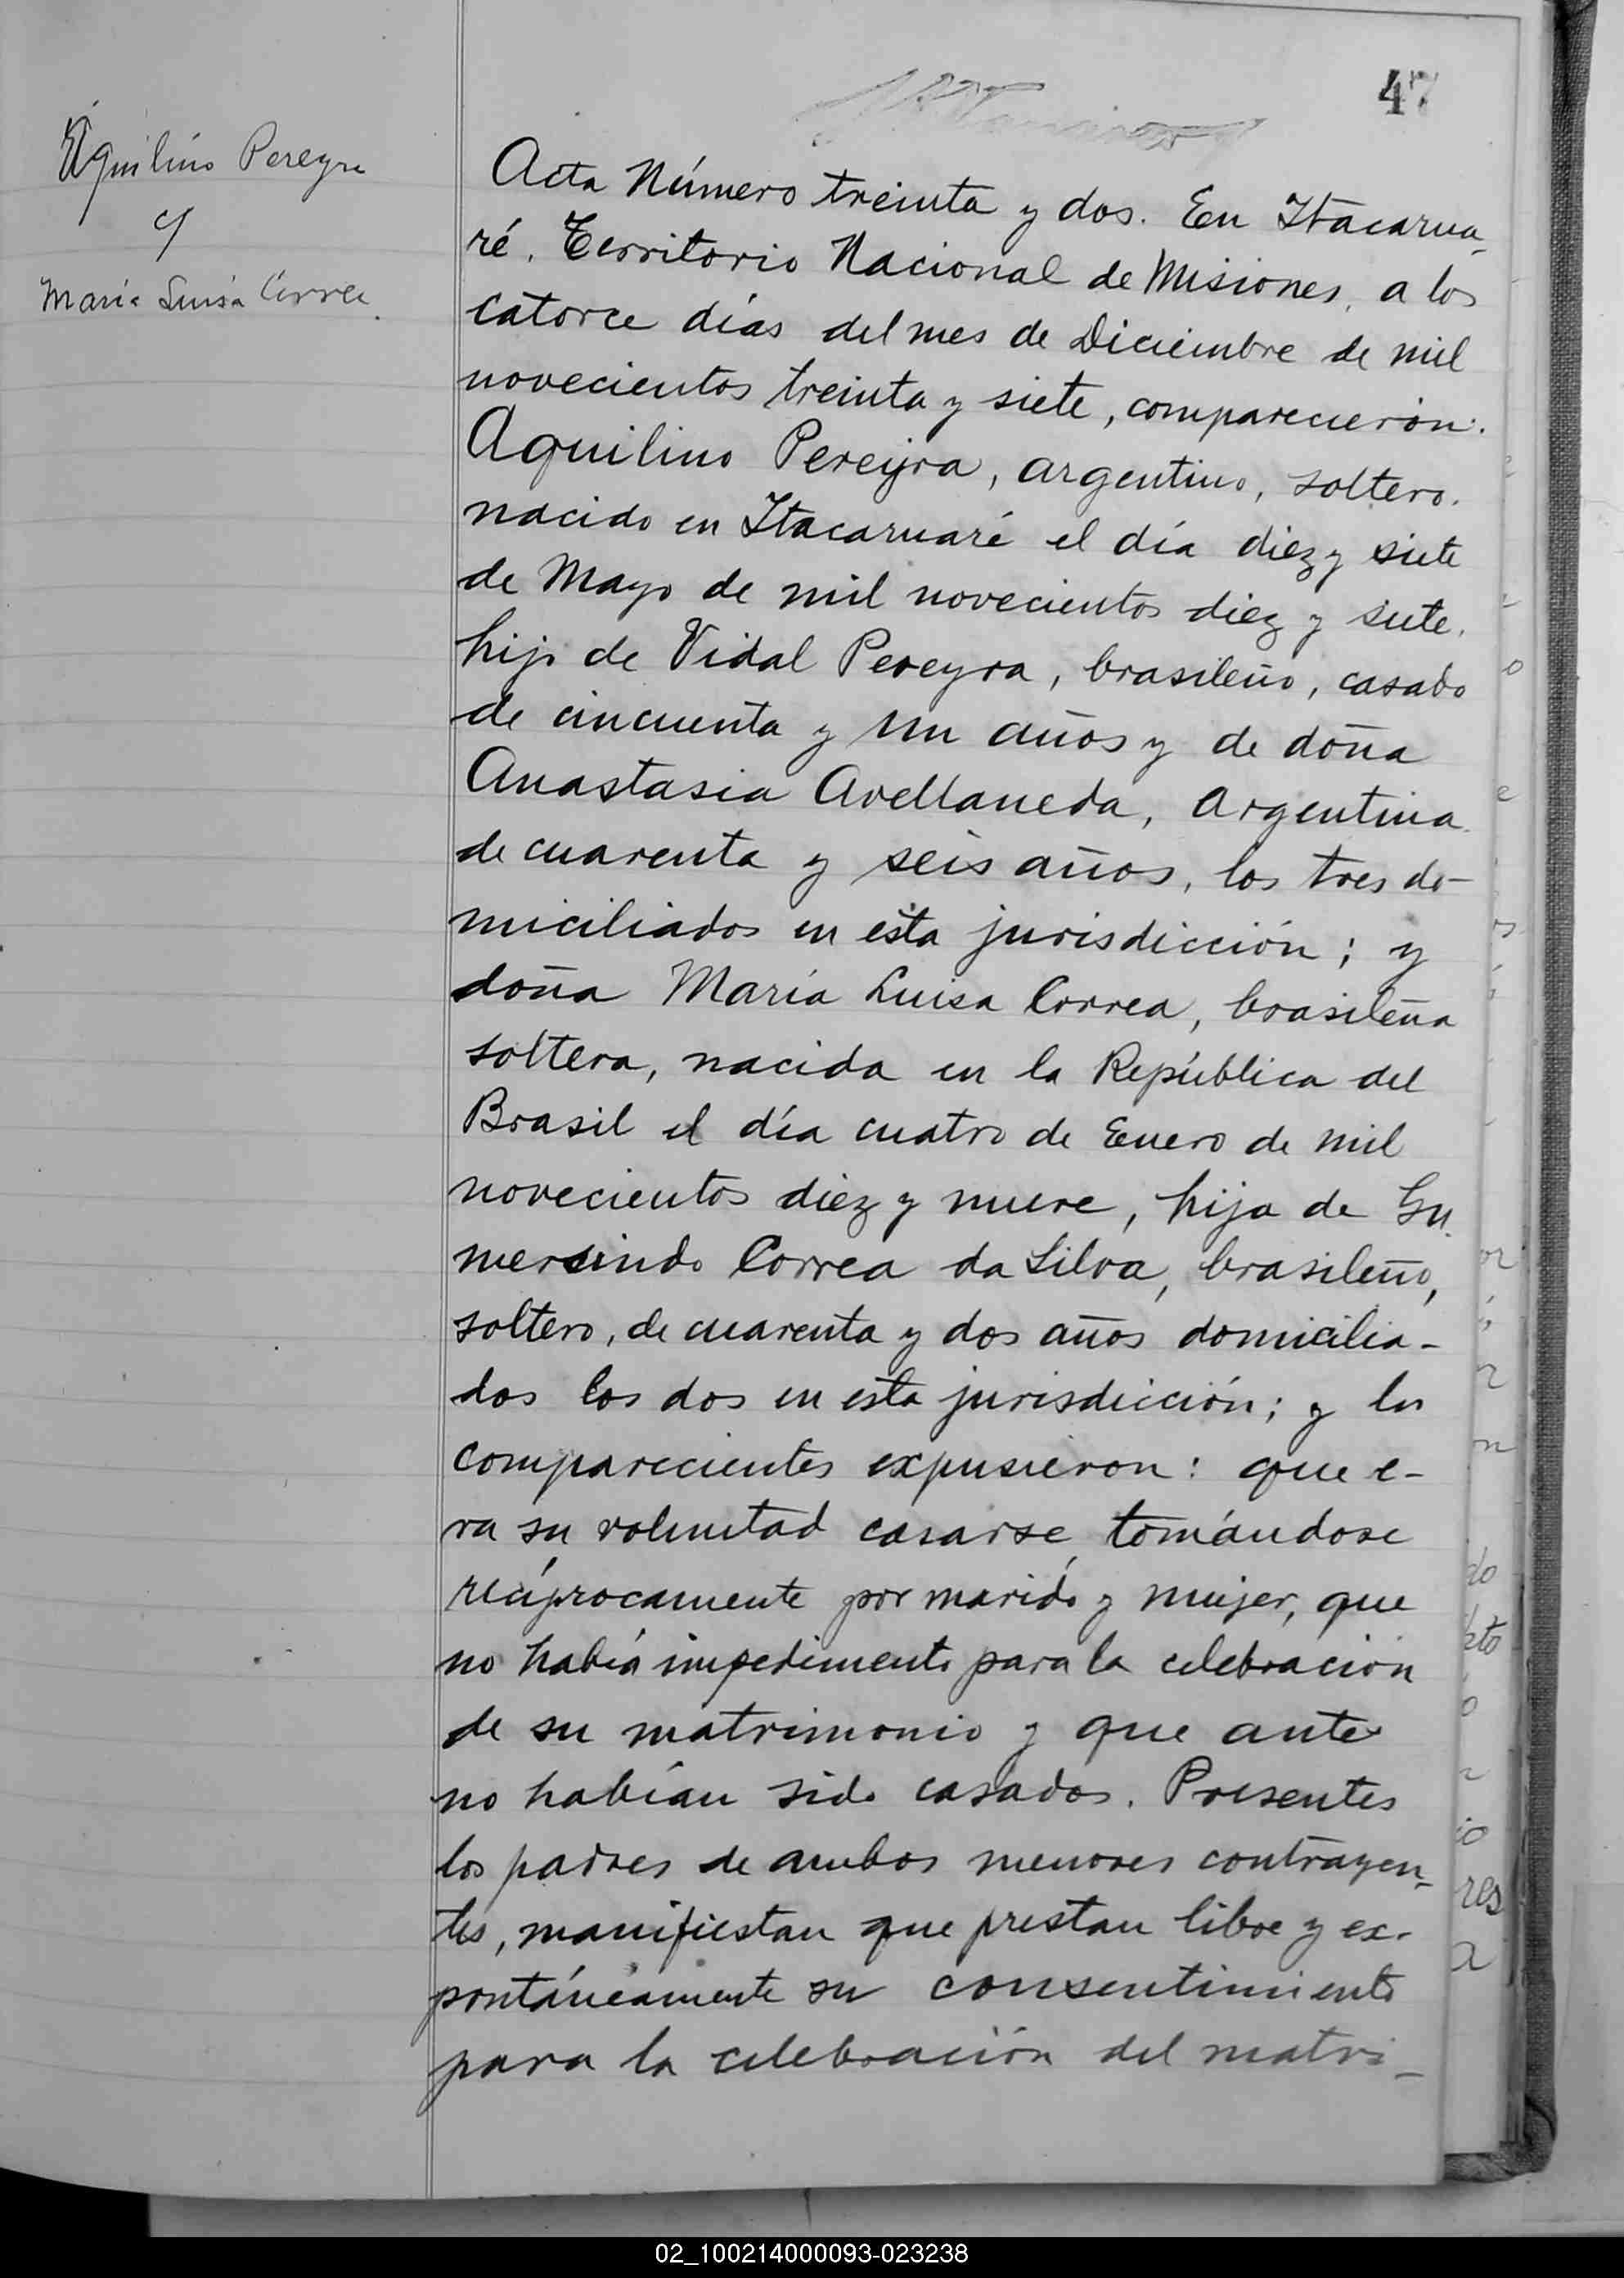 47
Aquilino Pereyra
y
María Luisa Correa.
Acta Número treinta y dos. En Itacarua-
ré, Territorio Nacional de Misiones, a los
catorce días del mes de Diciembre de mil
novecientos treinta y siete, comparecieron:
Aquilino Pereyra, argentino, soltero,
nacido en Itacaruaré el día diez y siete
de Mayo de mil novecientos diez y siete,
hijo de Vidal Pereyra, brasileño, casado
de cincuenta y un años y de doña
Anastasia Avellaneda, Argentina,
de cuarenta y seis años, los tres do-
miciliados en ésta jurisdicción; y
doña María Luisa Correa, brasileña
soltera, nacida en la República del
Brasil el día cuatro de Enero de mil
novecientos diez y nueve, hija de Gu-
mersindo Correa da Silva, brasileño,
soltero, de cuarenta y dos años domicilia-
dos los dos en esta jurisdicción; y los
comparecientes expusieron: que e-
ra su voluntad casarse, tomándose
recíprocamente por marido y mujer, que
no había impedimento para la celebración
de su matrimonio y que antes
no habían sido casados. Presentes
los padres de ambos menores contrayen-
tes, manifiestan que prestan libre y ex-
pontáneamente su consentimiento
para la celebración del matri-
02_100214000093-023238